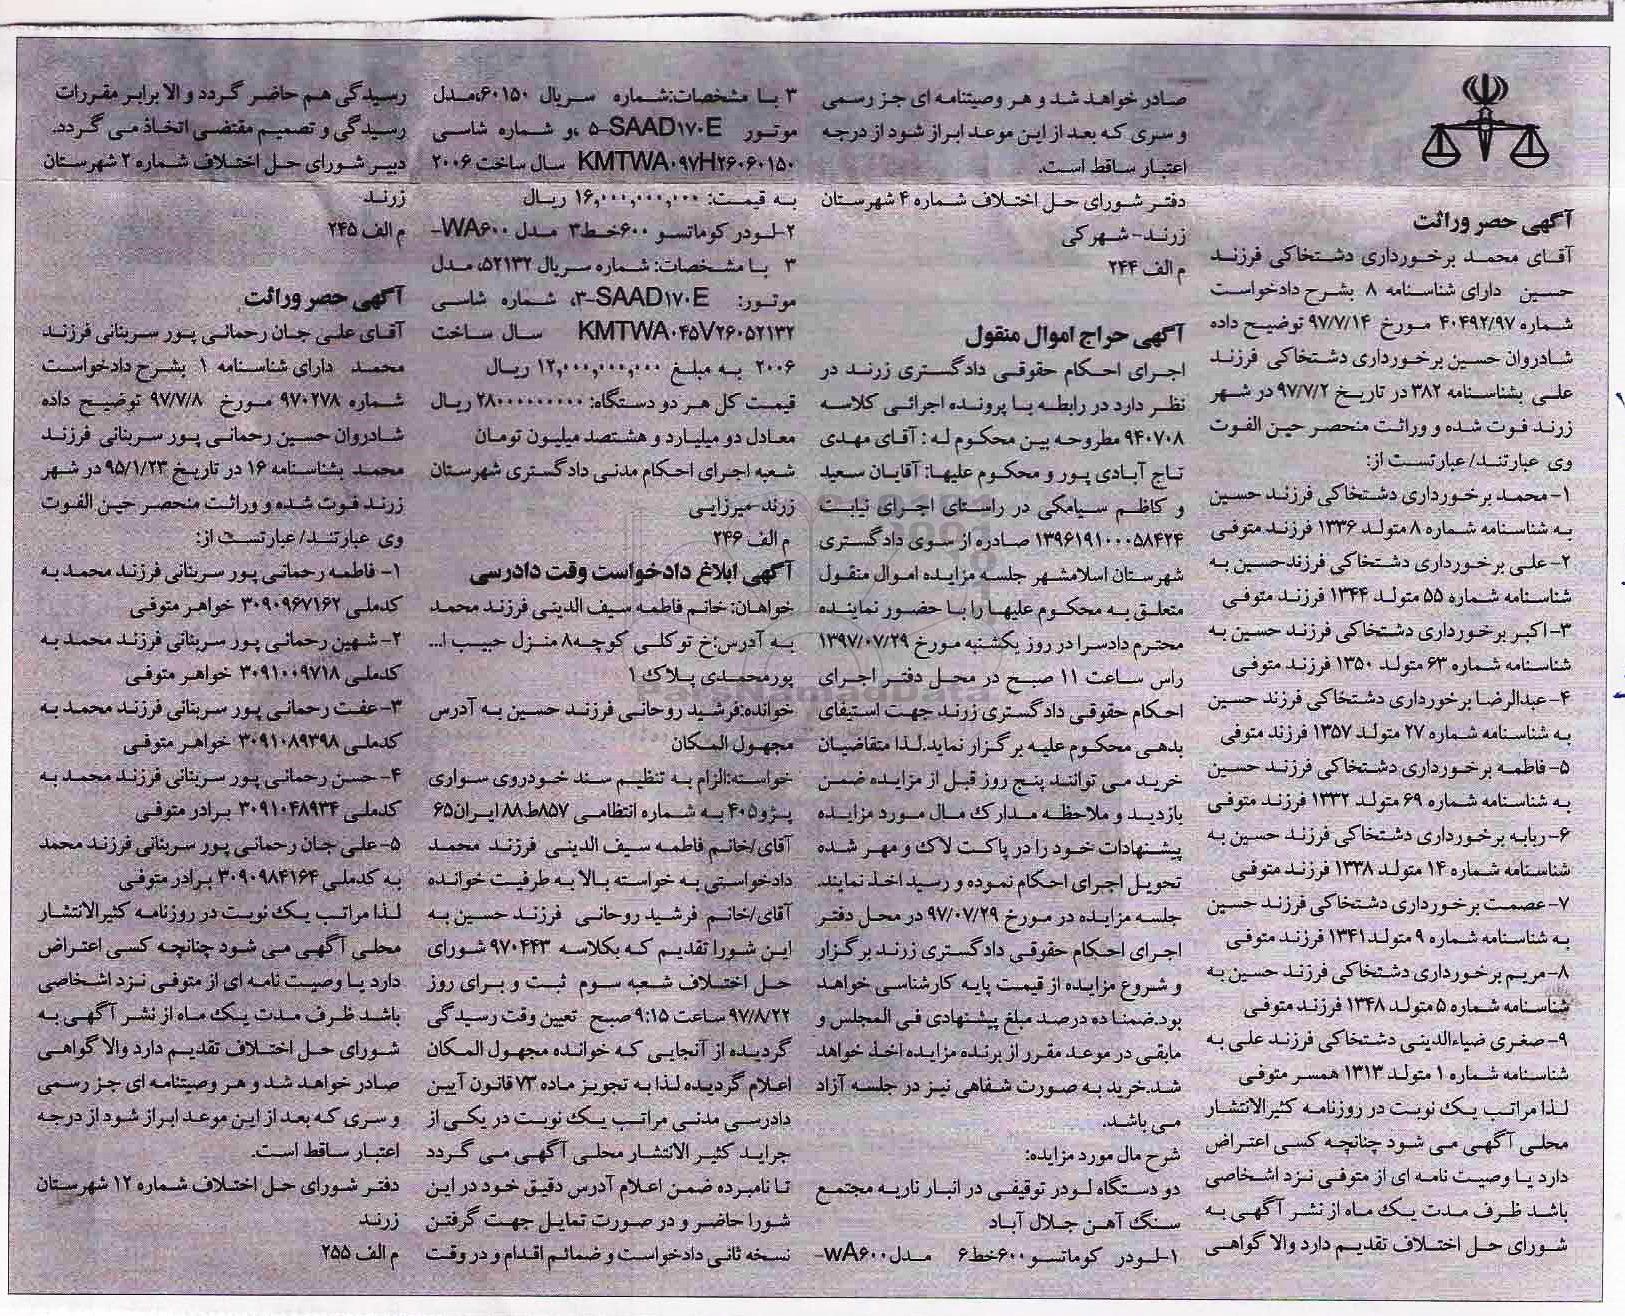 آگهی حصر وراثت
آقای محمد برخورداری دشتخاکی فرزند
حسین دارای شناسنامه ۸ بشرح دادخواست
شماره ۴۰۴۹۲/۹۷ مورخ ۹۷/۷/۱۴ توضیح داده
شادروان حسین برخورداری دشتخاکی فرزند
علی بشناسنامه ۳۸۲ در تاریخ ۹۷/۷/۲ در شهر
زرند فوت شده و وراثت منحصر حین الفوت
وی عبارتند/عبارتست از:
۱-محمد برخورداری دشتخاکی فرزند حسین
به شناسنامه شماره ۸ متولد ۱۳۳۶ فرزند متوفی
۲-علی برخورداری دشتخاکی فرزندحسین به
شناسنامه شماره ۵۵ متولد ۱۳۴۴ فرزند متوفی
۳-اکبر برخورداری دشتخاکی فرزند حسین به
شناسنامه شماره ۶۳ متولد ۱۳۵۰ فرزند متوفی
۴-عبدالرضا برخورداری دشتخاکی فرزند حسین
به شناسنامه شماره ۲۷ متولد ۱۳۵۷ فرزند متوفی
۵-فاطمه برخورداری دشتخاکی فرزند حسین
به شناسنامه شماره ۶۹ متولد ۱۳۳۲ فرزند متوفی
۶-ربابه برخورداری دشتخاکی فرزند حسین به
شناسنامه شماره ۱۴ متولد ۱۳۳۸ فرزند متوفی
۷-عصمت برخورداری دشتخاکی فرزند حسین
به شناسنامه شماره ۹ متولد۱۳۴۱ فرزند متوفی
۸-مریم برخورداری دشتخاکی فرزند حسین به
شناسنامه شماره ۵ متولد ۱۳۴۸ فرزند متوفی
۹-صغری ضیاءالدینی دشتخاکی فرزند علی به
شناسنامه شماره ۱ متولد ۱۳۱۳ همسر متوفی
لذا مراتب یک نوبت در روزنامه کثیرالانتشار
محلی آگهی می شود چنانچه کسی اعتراض
دارد یا وصیت نامه ای از متوفی نزد اشخاصی
باشد ظرف مدت یک ماه از نشر آگهی به
شورای حل اختلاف تقدیم دارد والا گواهی
صادر خواهد شد و هر وصیتنامه ای جز رسمی
و سری که بعد از این موعد ابراز شود از درجه
اعتبار ساقط است.
دفتر شورای حل اختلاف شماره ۴ شهرستان
زرند-شهرکی
م الف ۲۴۴
آگهی حراج اموال منقول
اجرای احکام حقوقی دادگستری زرند در
نظر دارد در رابطه با پرونده اجرائی کلاسه
۹۴۰۷۰۸ مطروحه بین محکوم له : آقای مهدی
تاج آبادی پور و محکوم علیها: آقایان سعید
و کاظم سیامکی در راستای اجرای نیابت
۱۳۹۶۱۹۱۰۰۰۵۸۴۲۴ صادره از سوی دادگستری
شهرستان اسلامشهر جلسه مزایده اموال منقول
متعلق به محکوم علیها را با حضور نماینده
محترم دادسرا در روز یکشنبه مورخ ۱۳۹۷/۰۷/۲۹
راس ساعت ۱۱ صبح در محل دفتر اجرای
احکام حقوقی دادگستری زرند جهت استیفای
بدهی محکوم علیه برگزار نماید.لذا متقاضیان
خرید می توانند پنج روز قبل از مزایده ضمن
بازدید و ملاحظه مدارک مال مورد مزایده
پیشنهادات خود را در پاکت لاک و مهر شده
تحویل اجرای احکام نموده و رسید اخذ نمایند.
جلسه مزایده در مورخ ۹۷/۰۷/۲۹ در محل دفتر
اجرای احکام حقوقی دادگستری زرند برگزار
و شروع مزایده از قیمت پایه کارشناسی خواهد
بود.ضمنا ده درصد مبلغ پیشنهادی فی المجلس و
مابقی در موعد مقرر از برنده مزایده اخذ خواهد
شد.خرید به صورت شفاهی نیز در جلسه آزاد
می باشد.
شرح مال مورد مزایده:
دو دستگاه لودر توقیفی در انبار ناریه مجتمع
سنگ آهن جلال آباد
۱-لودر کوماتسو ۶۰۰خط۶ مدل wA۶۰۰-
۳ با مشخصات:شماره سریال ۶۰۱۵۰،مدل
موتور ۵-SAAD۱۷۰E ،و شماره شاسی
KMTWA۰۹۷H۲۶۰۶۰۱۵۰ سال ساخت ۲۰۰۶
به قیمت: ۱۶,۰۰۰,۰۰۰,۰۰۰ ریال
۲-لودر کوماتسو ۶۰۰خط۳ مدل WA۶۰۰-
۳ با مشخصات: شماره سریال ۵۲۱۳۲، مدل
موتور: ۳-SAAD۱۷۰E، شماره شاسی
KMTWA۰۴۵V۲۶۰۵۲۱۳۲ سال ساخت
۲۰۰۶ به مبلغ ۱۲,۰۰۰,۰۰۰,۰۰۰ ریال
قیمت کل هر دو دستگاه: ۲۸۰۰۰۰۰۰۰۰۰ ریال
معادل دو میلیارد و هشتصد میلیون تومان
شعبه اجرای احکام مدنی دادگستری شهرستان
زرند-میرزایی
م الف ۲۴۶
آگهی ابلاغ دادخواست وقت دادرسی
خواهان: خانم فاطمه سیف الدینی فرزند محمد
به آدرس:خ توکلی کوچه۸ منزل حبیب ا...
پورمحمدی پلاک ۱
خوانده:فرشید روحانی فرزند حسین به آدرس
مجهول المکان
خواسته:الزام به تنظیم سند خودروی سواری
پژو۴۰۵ به شماره انتظامی ۸۵۷ط۸۸ ایران۶۵
آقای/خانم فاطمه سیف الدینی فرزند محمد
دادخواستی به خواسته بالا به طرفیت خوانده
آقای/خانم فرشید روحانی فرزند حسین به
این شورا تقدیم که بکلاسه ۹۷۰۴۴۳ شورای
حل اختلاف شعبه سوم ثبت و برای روز
۹۷/۸/۲۲ ساعت ۹:۱۵ صبح تعیین وقت رسیدگی
گردیده از آنجایی که خوانده مجهول المکان
اعلام گردیده لذا به تجویز ماده ۷۳ قانون آیین
دادرسی مدنی مراتب یک نوبت در یکی از
جراید کثیر الانتشار محلی آگهی می گردد
تا نامبرده ضمن اعلام آدرس دقیق خود در این
شورا حاضر و در صورت تمایل جهت گرفتن
نسخه ثانی دادخواست و ضمائم اقدام و در وقت
رسیدگی هم حاضر گردد و الا برابر مقررات
رسیدگی و تصمیم مقتضی اتخاذ می گردد.
دبیر شورای حل اختلاف شماره ۲ شهرستان
زرند
م الف ۲۴۵
آگهی حصر وراثت
آقای علی جان رحمانی پور سربنانی فرزند
محمد دارای شناسنامه ۱ بشرح دادخواست
شماره ۹۷۰۲۷۸ مورخ ۹۷/۷/۸ توضیح داده
شادروان حسین رحمانی پور سربنانی فرزند
محمد بشناسنامه ۱۶ در تاریخ ۹۵/۱/۲۳ در شهر
زرند فوت شده و وراثت منحصر حین الفوت
وی عبارتند/عبارتست از:
۱- فاطمه رحمانی پور سربنانی فرزند محمد به
کدملی ۳۰۹۰۹۶۷۱۶۲ خواهر متوفی
۲-شهین رحمانی پور سربنانی فرزند محمد به
کدملی ۳۰۹۱۰۰۹۷۱۸ خواهر متوفی
۳-عفت رحمانی پور سربنانی فرزند محمد به
کدملی ۳۰۹۱۰۸۹۳۹۸ خواهر متوفی
۴-حسن رحمانی پور سربنانی فرزند محمد به
کدملی ۳۰۹۱۰۴۸۹۳۴ برادر متوفی
۵-علی جان رحمانی پور سربنانی فرزند محمد
به کدملی ۳۰۹۰۹۸۴۱۶۴ برادر متوفی
لذا مراتب یک نوبت در روزنامه کثیرالانتشار
محلی آگهی می شود چنانچه کسی اعتراض
دارد یا وصیت نامه ای از متوفی نزد اشخاصی
باشد ظرف مدت یک ماه از نشر آگهی به
شورای حل اختلاف تقدیم دارد والا گواهی
صادر خواهد شد و هر وصیتنامه ای جز رسمی
و سری که بعد از این موعد ابراز شود از درجه
اعتبار ساقط است.
دفتر شورای حل اختلاف شماره ۱۲ شهرستان
زرند
م الف ۲۵۵